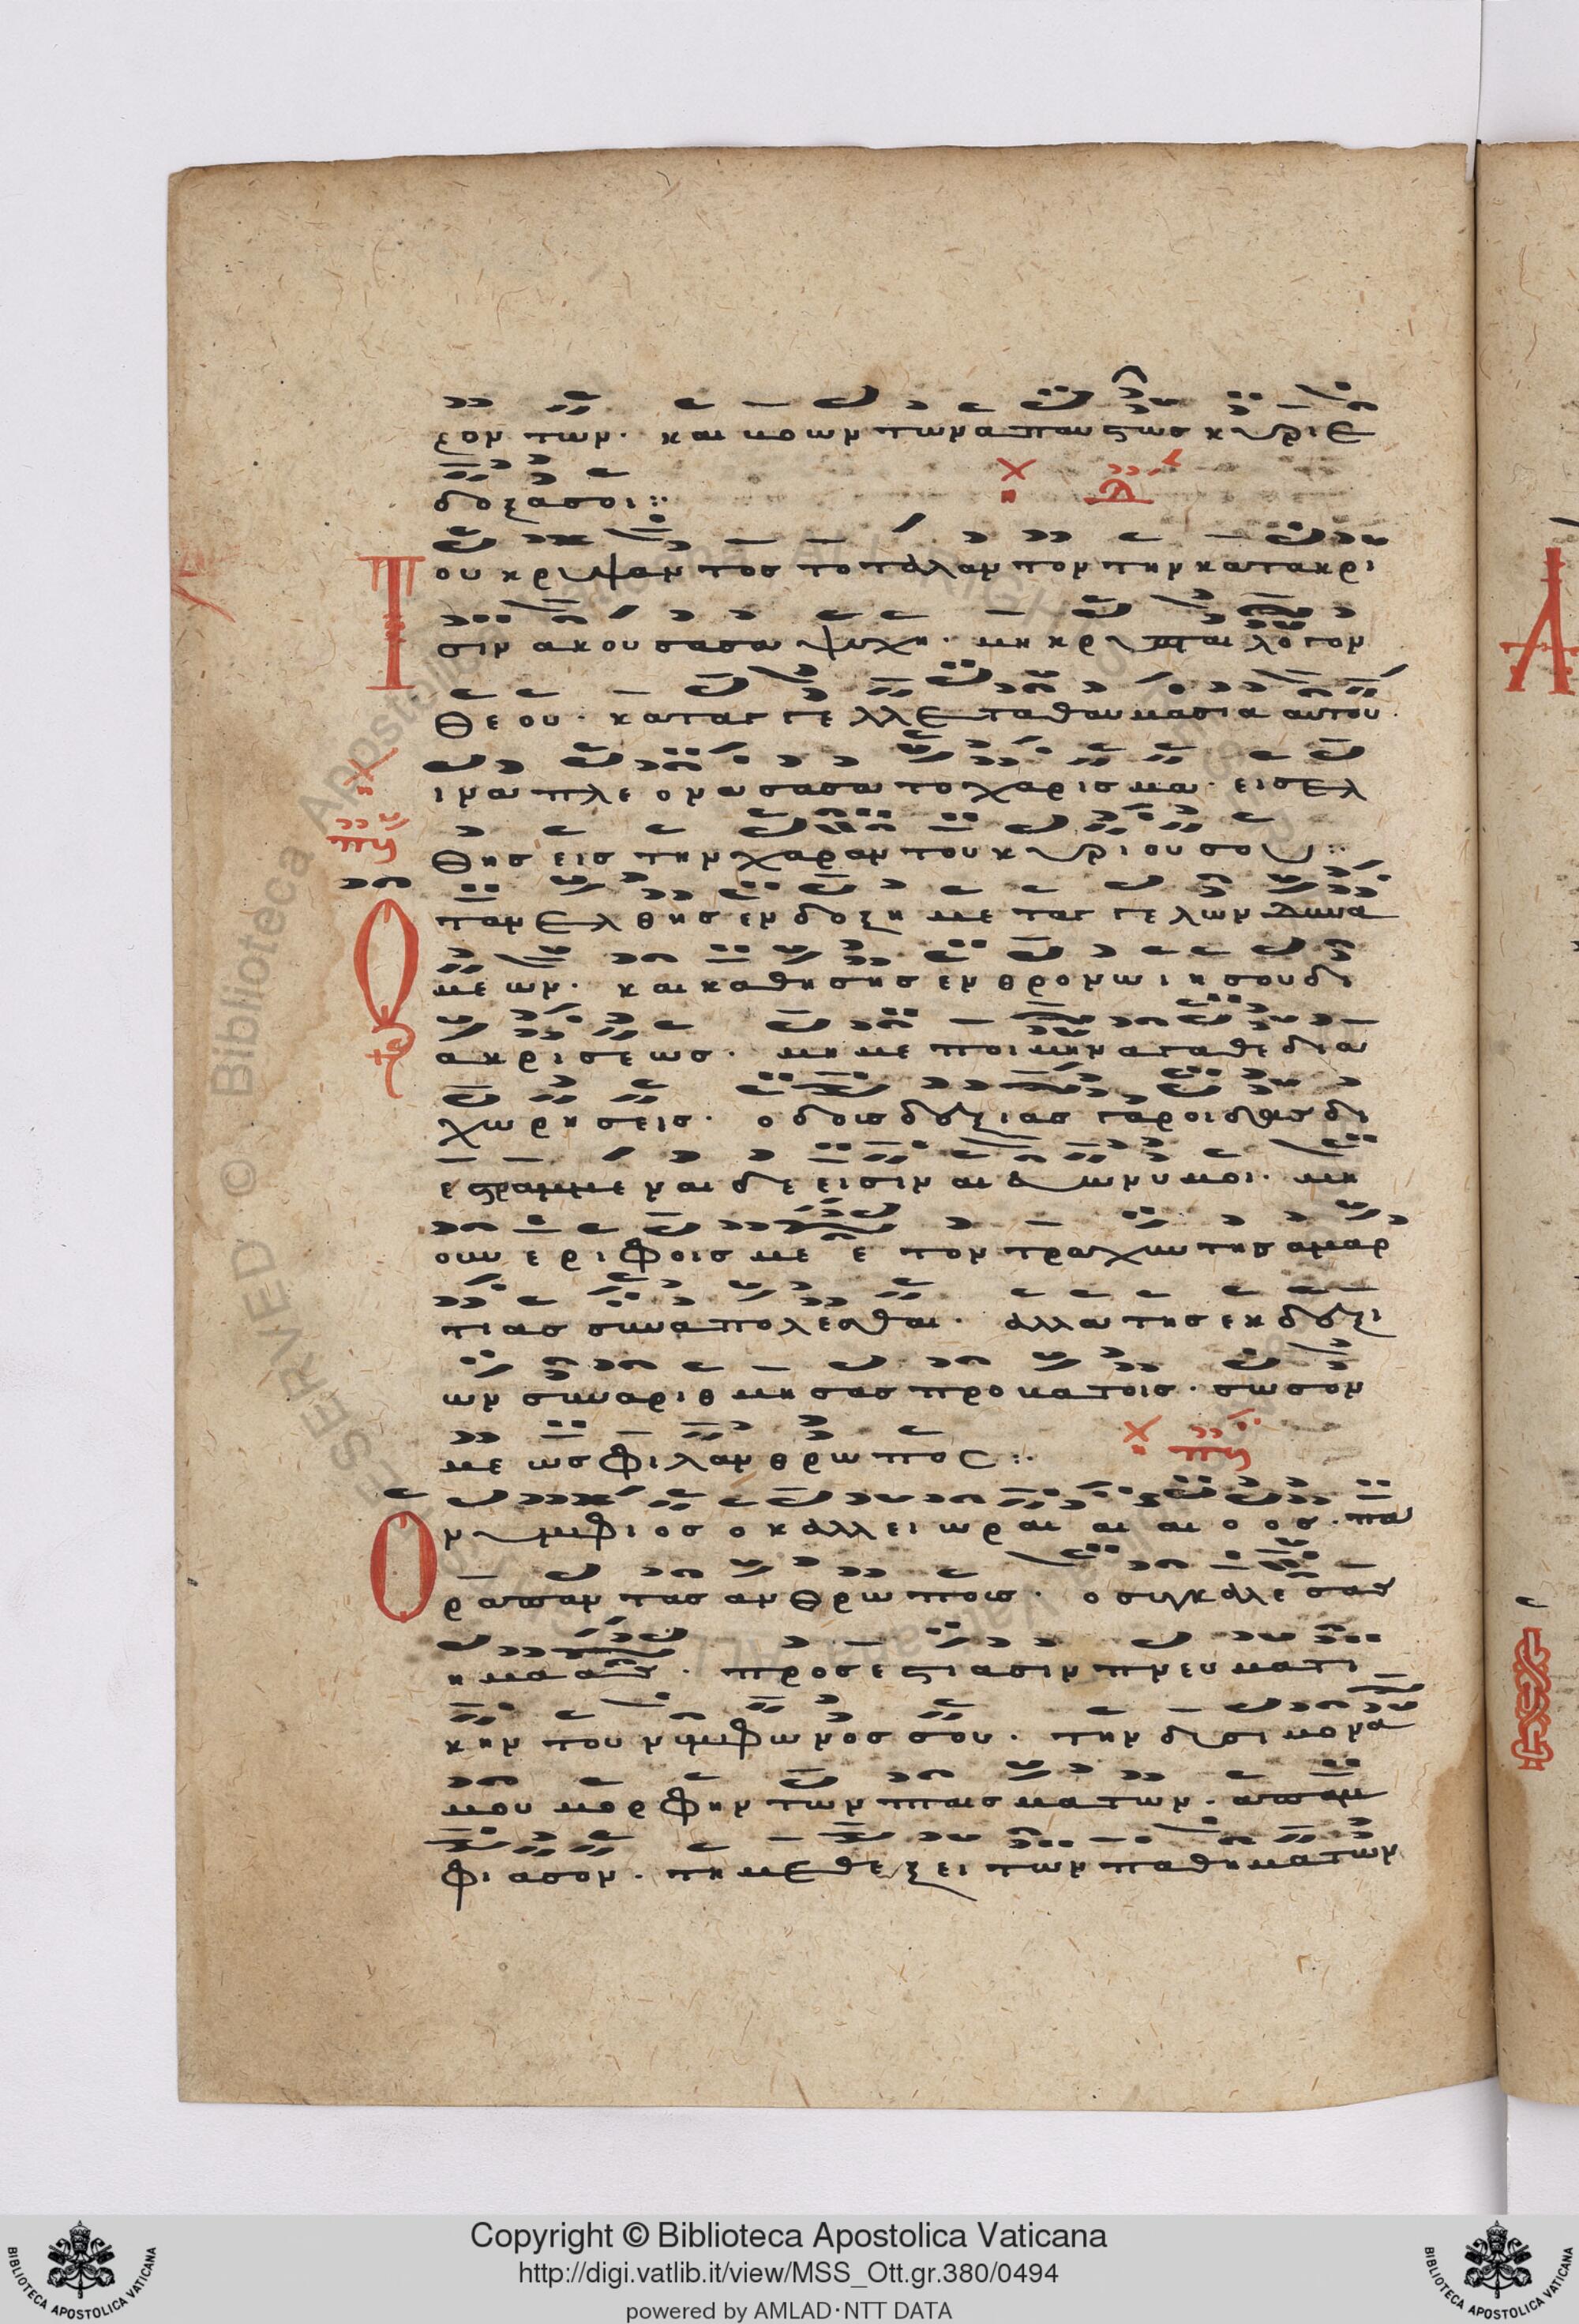 ζον των· και βοων των απαυστως κυριε
δοξα σοι:·
Του κρυψαντος το ταλαντον την κατακρι
σιν ακουσασα ψυχη· μη κρυπται λογον
θεου· καταγγελλε τα θαυμασια αυτου·
ινα πλεονασασα το χαρισμα· εισελ
θης εις την χαραν του κυριου σου:·
Οταν ελθης εν δοξη μετ αγγελων δυνα
μεων· και καθησης εν θρονω ιησου δι
ακρισεως· μη με ποιμην αγαθε δια
χωρησεις· οδοις δεξιας γαρ οιδας δι
εστραμμεναι δε εισιν αι ευωνυμοι· μη
ουν εριφοις με ε τον τραχυν της αμαρ
τιας συναπολεσθαι· αλλα τησ εκ δεξι
ων συναριθμησας προβατοις· σωσον
με ως φιλανθρωπος:·
Ο νυμφιος ο καλλει ωραι αι αι ο ος· πα
ρα παντας ανθρωπους· ο συγκαλεσας
ημα ας· προς εστιασιν πνευματι
κην του νυμφωνος σου· την δυσειμονα
μου μορφην των πταισματων· απαμ
φιασον· τη μεθεξει των παθηματων
Copyright © Biblioteca Apostolica Vaticana
http://digi.vatlib.it/view/MSS_Ott.gr.380/0494
powered by AMLAD·NTT DATA
BIBLIOTECA APOSTOLICA VATICANA
BIBLIOTECA APOSTOLICA VATICANA